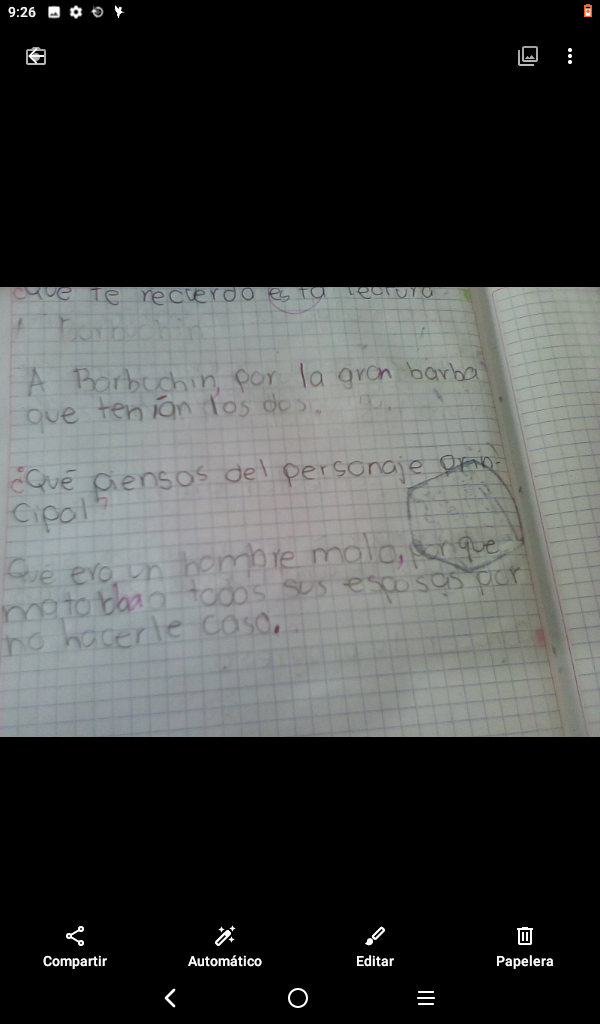 9:26
que te recuerda esta lectura
Barbuchin
A Barbuchin, por la gran barba
que tenían los dos.
¿Qué piensas del personaje prin-
cipal?
Que era un hombre malo, porque
mataba a todas sus esposas por
no hacerle caso.
Compartir
Automático
Editar
Papelera